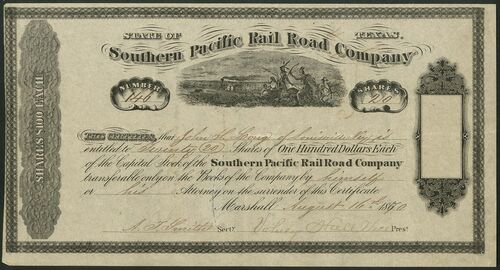 STATE OF TEXAS.
Southern Pacific Rail Road Company
NUMBER 146
SHARES 20
SHARES $100 EACH
THIS CERTIFIES, that John H. of Louisville Ky is
entitled to Twenty (20) Shares of One Hundred Dollars Each
of the Capital Stock of the Southern Pacific Rail Road Company
transferable only on the Books of the Company by himself
or his Attorney on the surrender of this Certificate
Marshall August 16th 1860
A. F. Smith Secty. Volney Hall Vice Prest.